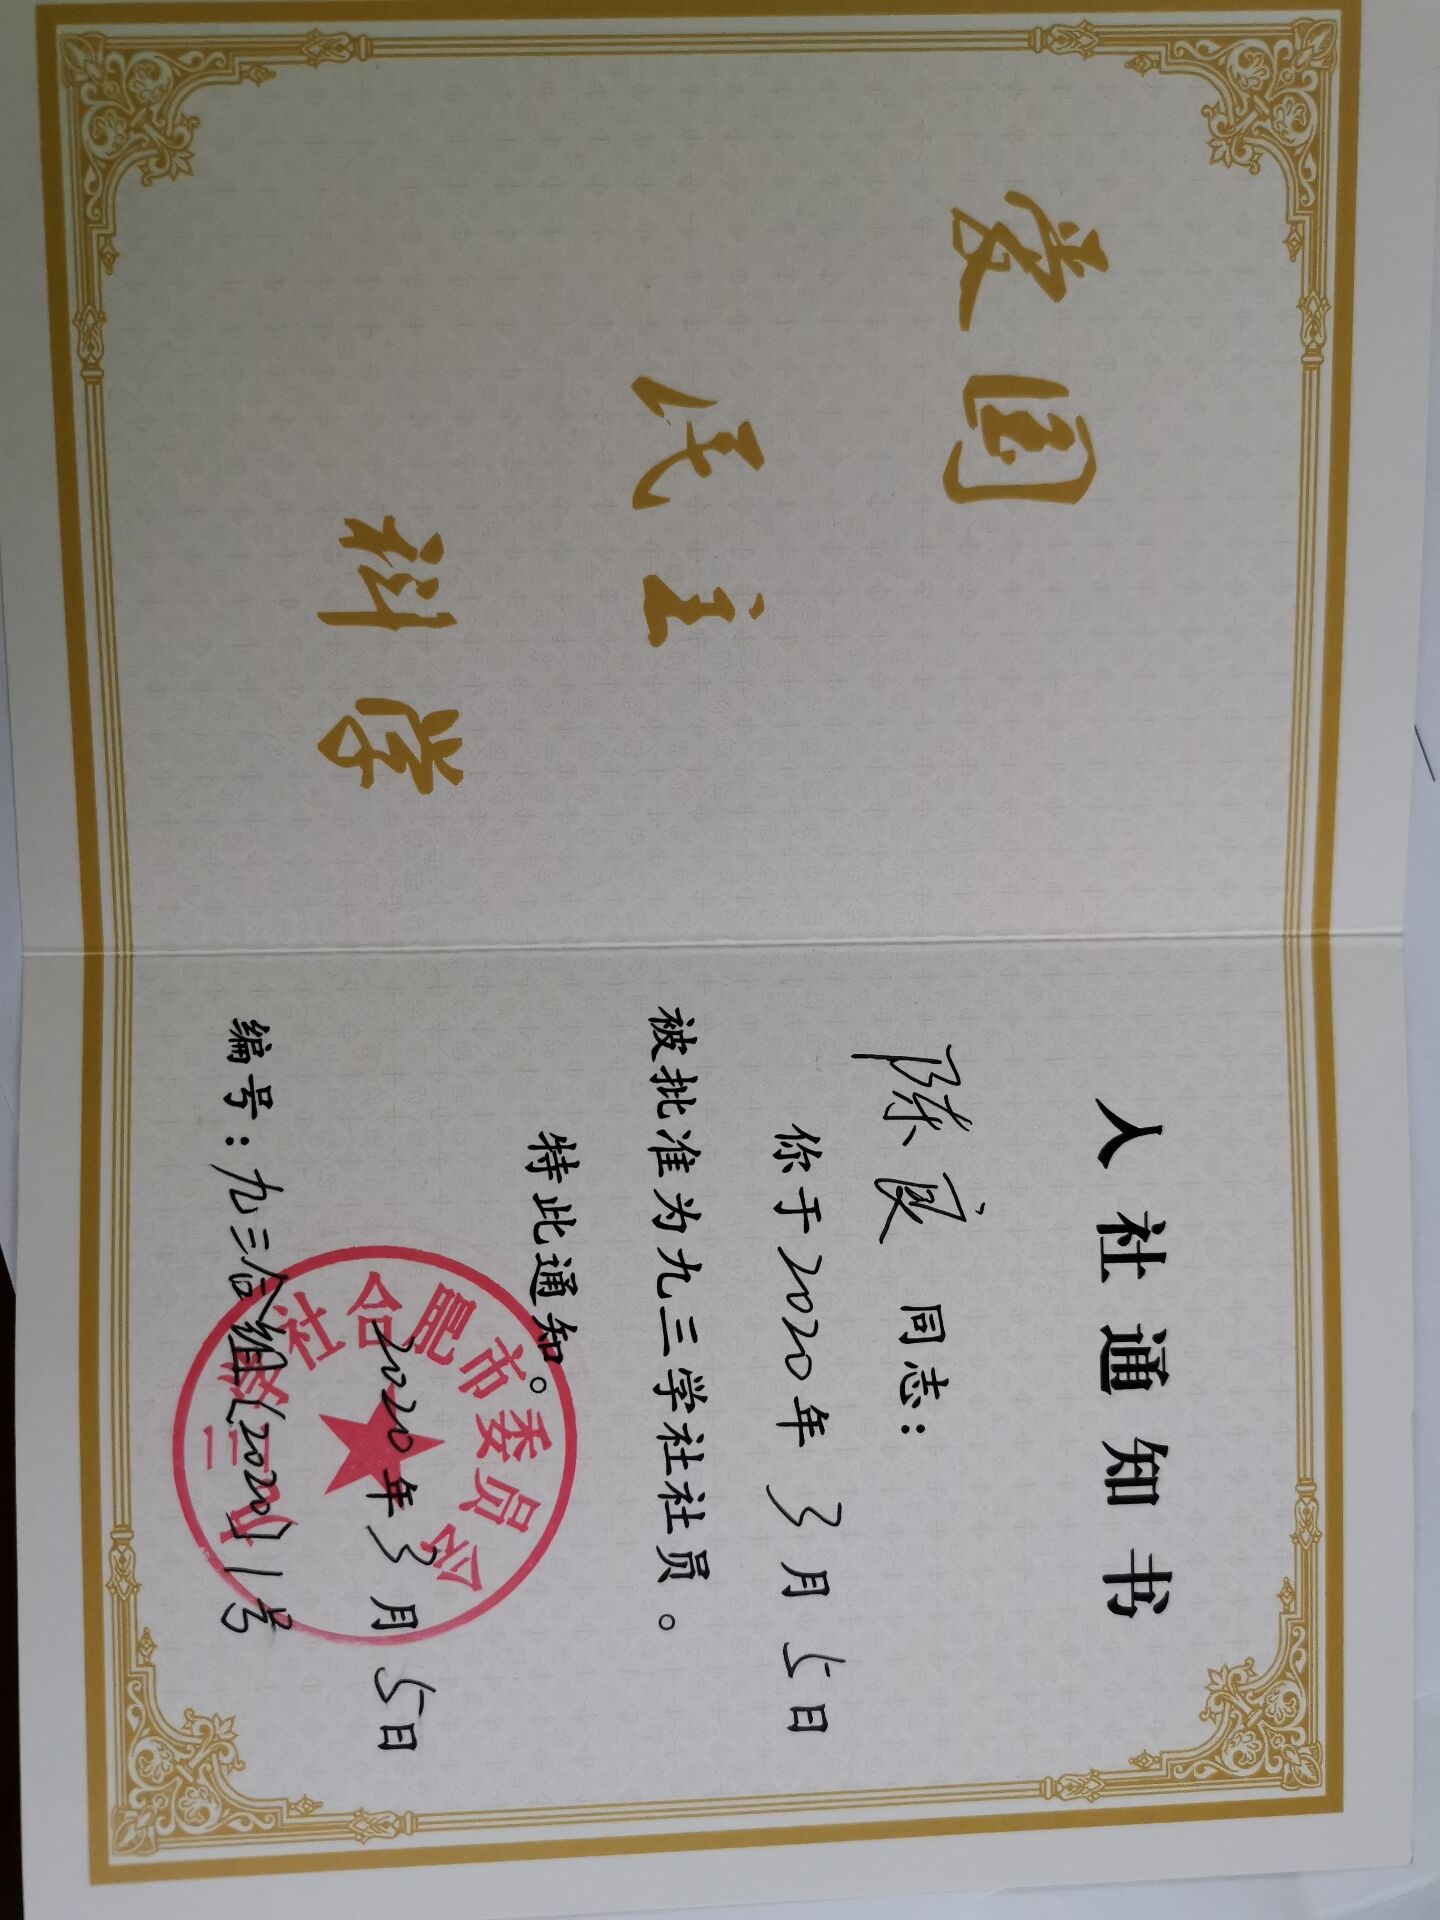 爱国
民主
科学
入社通知书
陈良 同志：
你于2020年3月5日
被批准为九三学社社员。
特此通知。
九三学社合肥市委员会
2020年3月5日
编号：九三合组〔2020〕1号